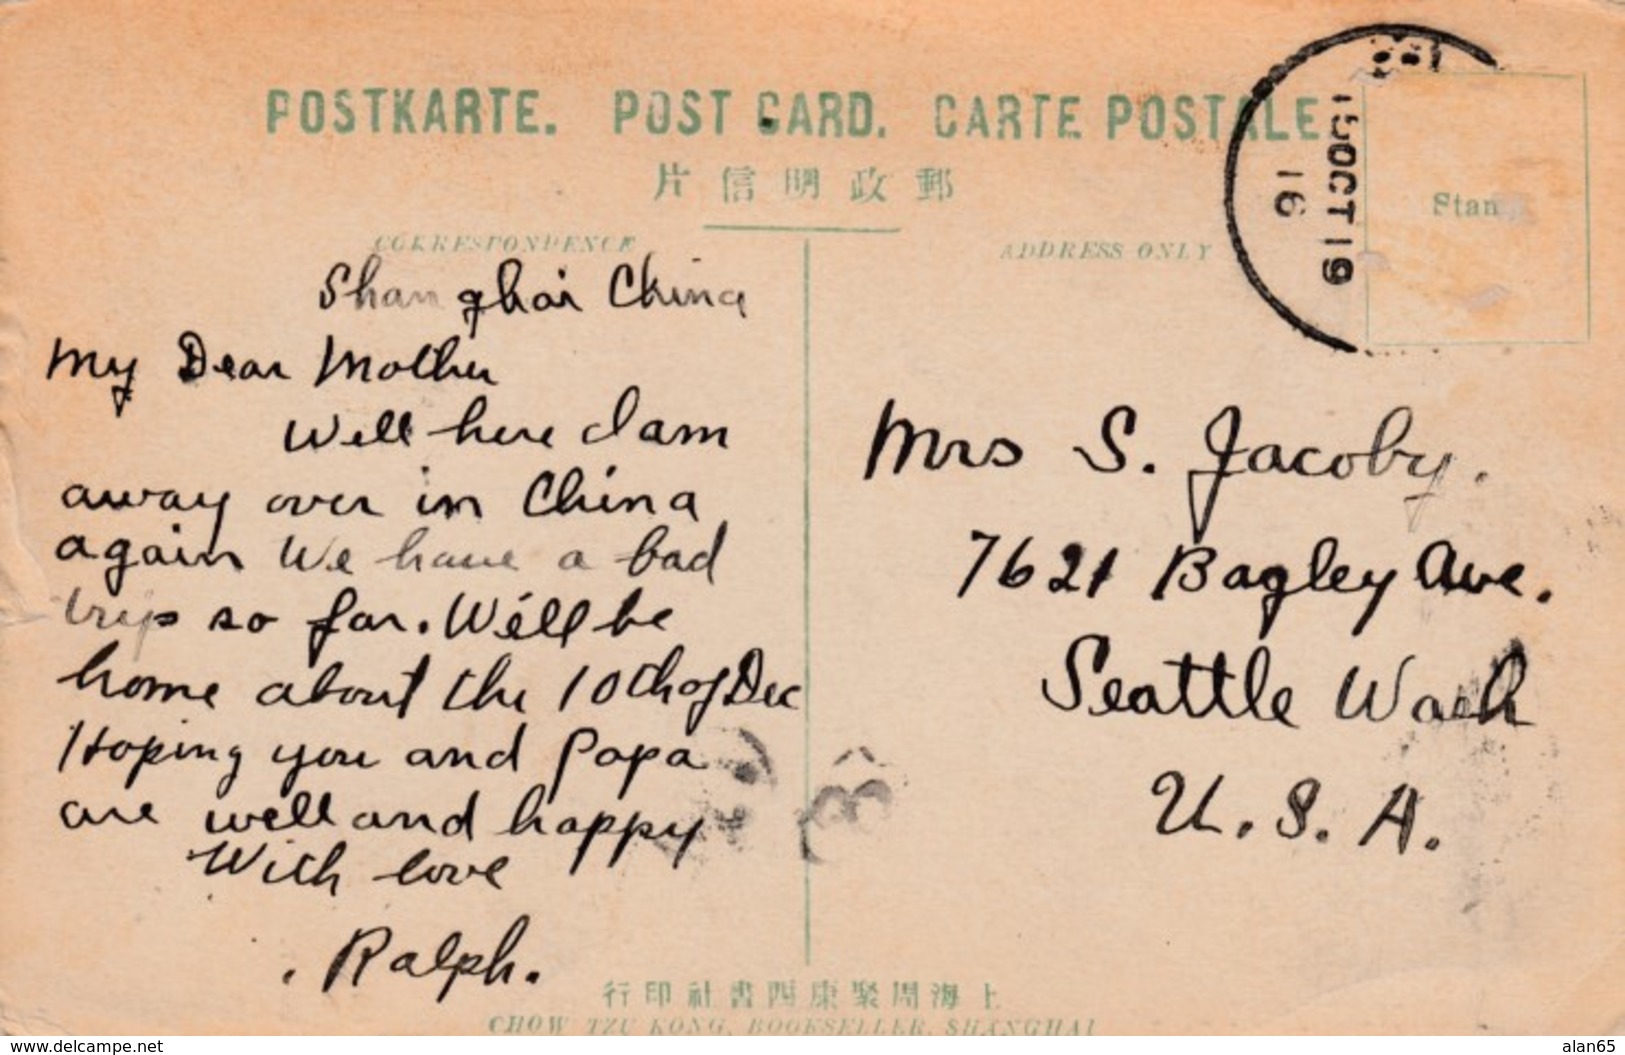 POSTKARTE. POST CARD. CARTE POSTALE
片信明政郵
CORRESPONDENCE
ADDRESS ONLY
15 OCT 19
16
Stam
Shanghai China
My Dear Mother
Well here I am
away over in China
again We have a bad
trip so far. We'll be
home about the 10th of Dec
Hoping you and Papa
are well and happy
With love
Ralph.
Mrs S. Jacoby.
7621 Bagley Ave.
Seattle Wash
U.S.A.
行印社書四康聚周海上
CHOW TZU KONG, BOOKSELLER, SHANGHAI
www.delcampe.net
alan65